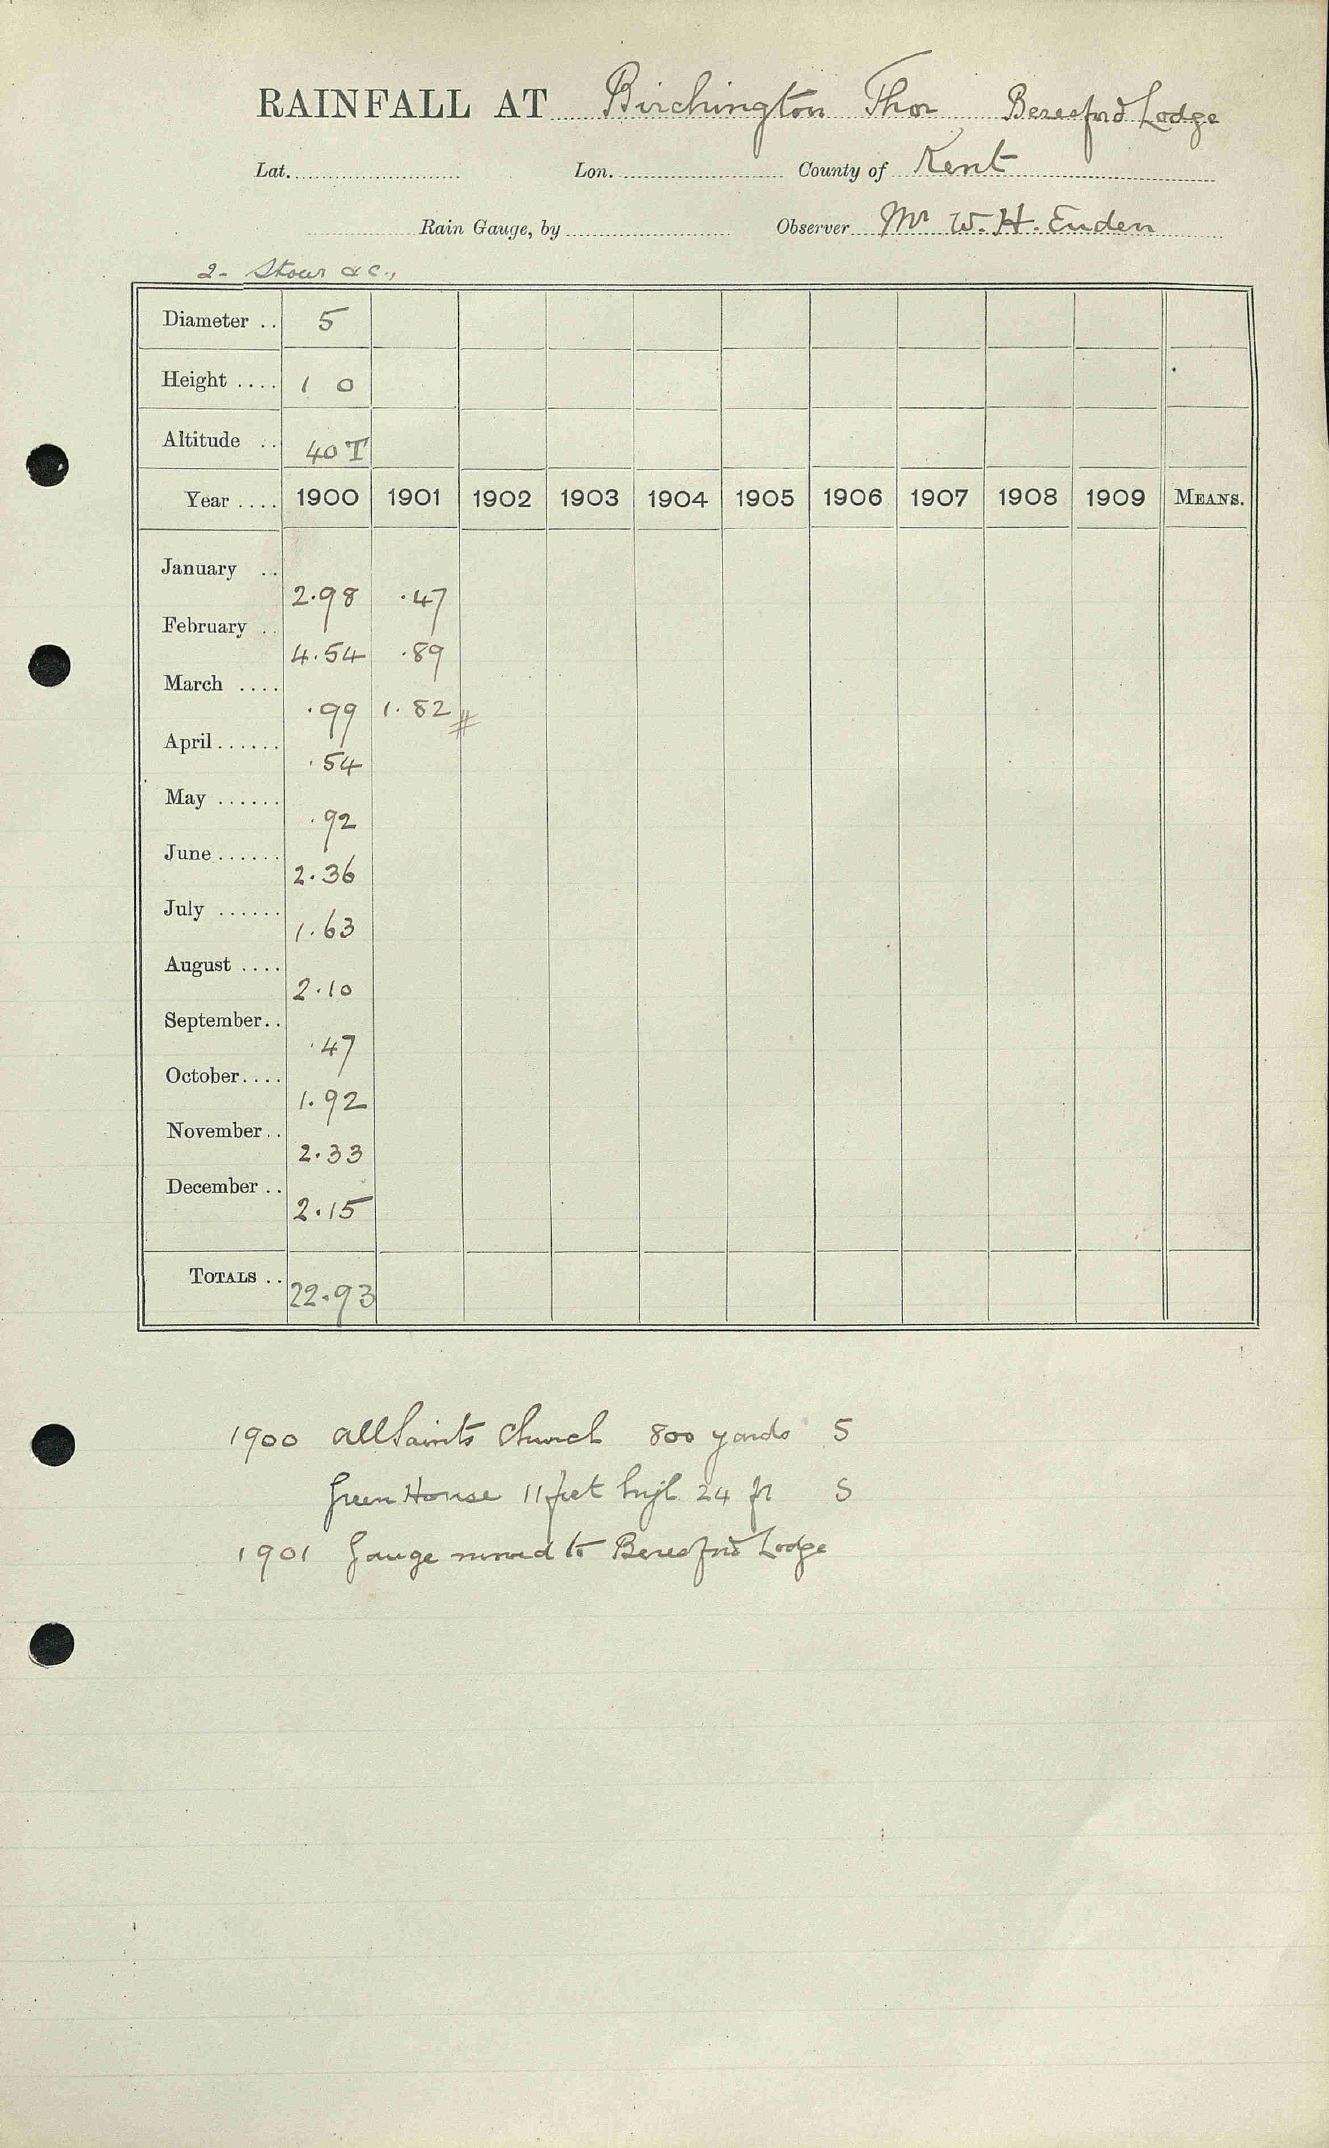 RAINFALL AT Birchington Thor Beresford Lodge
Lat. Lon. County of Kent
Rain Gauge, by Observer Mr W. H. Enden
2- Stour &c.,
Diameter .. 5
Height .... 1 0
Altitude .. 40 T
Year .... 1900 1901 1902 1903 1904 1905 1906 1907 1908 1909 MEANS.
January .. 2.98 .47
February .. 4.54 .89
March .... .99 1.82 #
April ...... .54
May ...... .92
June ...... 2.36
July ...... 1.63
August .... 2.10
September .. .47
October .... 1.92
November .. 2.33
December .. 2.15
TOTALS .. 22.93
1900 All Saints Church 800 yards S
Green House 11 feet high 24 ft S
1901 Gauge moved to Beresford Lodge